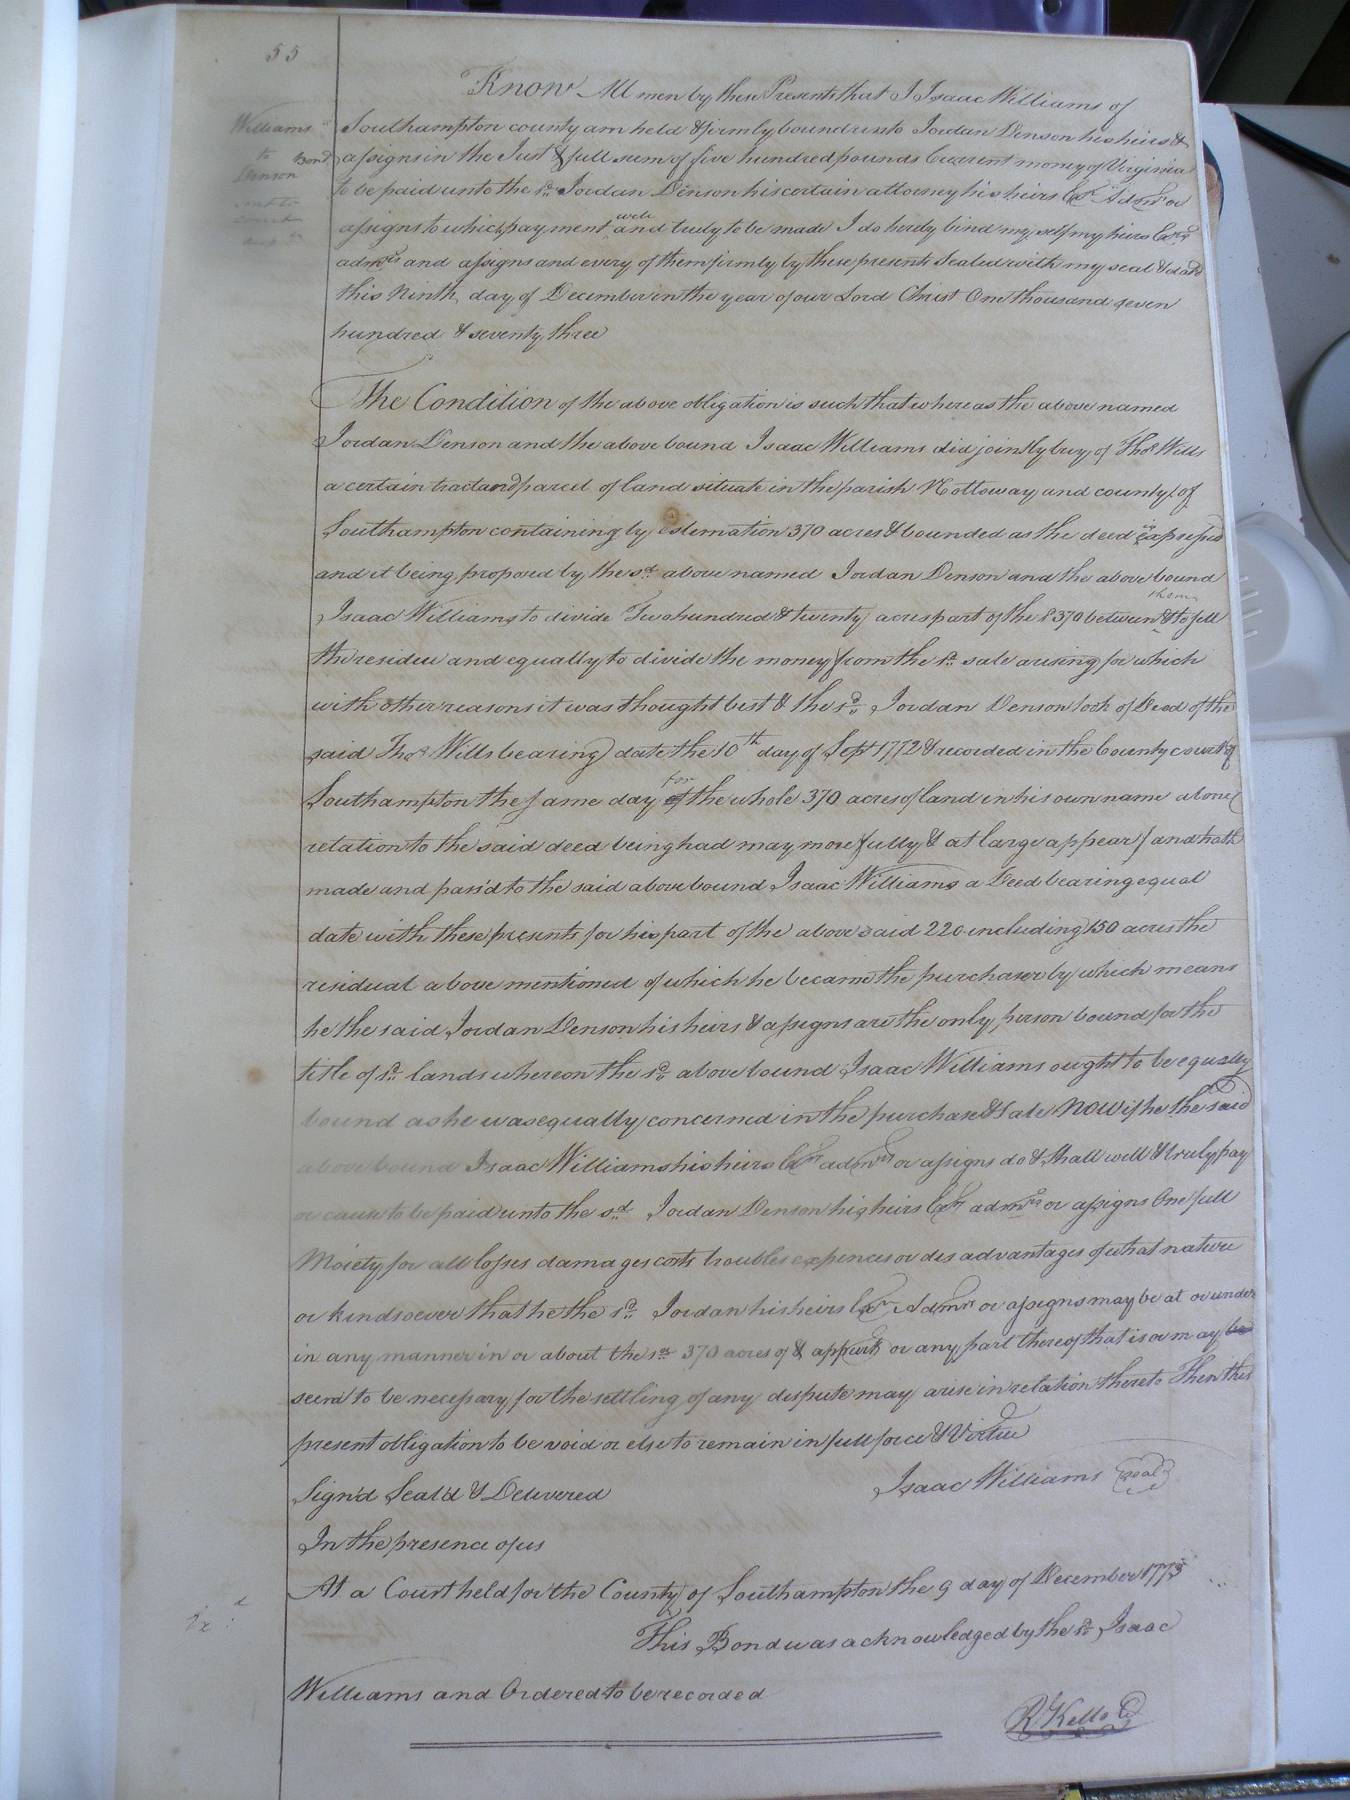 55
Williams
to Bond
Denson
Know All men by these Presents that I Isaac Williams of
Southampton county am held & firmly bound unto Jordan Denson his heirs &
assigns in the Just & full sum of five hundred pounds Current money of Virginia
to be paid unto the sd. Jordan Denson his certain attorney his heirs Exrs Admrs or
assigns to which payment well and truly to be made I do hereby bind my self my heirs Exrs
admrs and assigns and every of them firmly by these presents Sealed with my seal & date
this Ninth day of December in the year of our Lord Christ One thousand seven
hundred & seventy three
The Condition of the above obligation is such that whereas the above named
Jordan Denson and the above bound Isaac Williams did jointly buy of Thos. Wills
a certain tract and parcel of land situate in the parish Nottoway and county of
Southampton containing by estemation 370 acres & bounded as the deed is expressed
and it being proposed by the sd. above named Jordan Denson and the above bound
Isaac Williams to divide Two hundred & twenty acres part of the s 370 between them & to sell
the residue and equally to divide the money from the sd. sale arising for which
with other reasons it was thought best & the sd. Jordan Denson took of Deed of the
said Thos. Wills bearing date the 10th day of Sept 1772 & recorded in the County court of
Southampton the same day for the whole 370 acres of land in his own name alone (
relation to the said deed being had may more fully & at large appear) and hath
made and pass'd to the said above bound Isaac Williams a Deed bearing equal
date with these presents for his part of the above said 220 including 150 acres the
residual above mentioned of which he became the purchaser by which means
he the said Jordan Denson his heirs & assigns are the only person bound for the
title of sd. lands whereon the sd. above bound Isaac Williams ought to be equally
bound as he was equally concerned in the purchase & sale NOW if he the said
above bound Isaac Williams his heirs Exrs admrs or assigns do & shall well & truly pay
or cause to be paid unto the sd. Jordan Denson his heirs Exrs admrs or assigns One full
Moiety for all losses damages costs troubles expences or disadvantages of what nature
or kind soever that he the sd. Jordan his heirs Exrs Admrs or assigns may be at or under
in any manner in or about the sd. 370 acres of & appurts or any part thereof that is or may be
seem to be necessary for the settling of any dispute may arise in relation thereto Then this
present obligation to be void or else to remain in full force & Virtue
Sign'd Seal'd & Delivered Isaac Williams Seal
In the presence of us
At a Court held for the County of Southampton the 9 day of December 1773
This Bond was acknowledged by the sd. Isaac
Williams and Ordered to be recorded
R Kello C